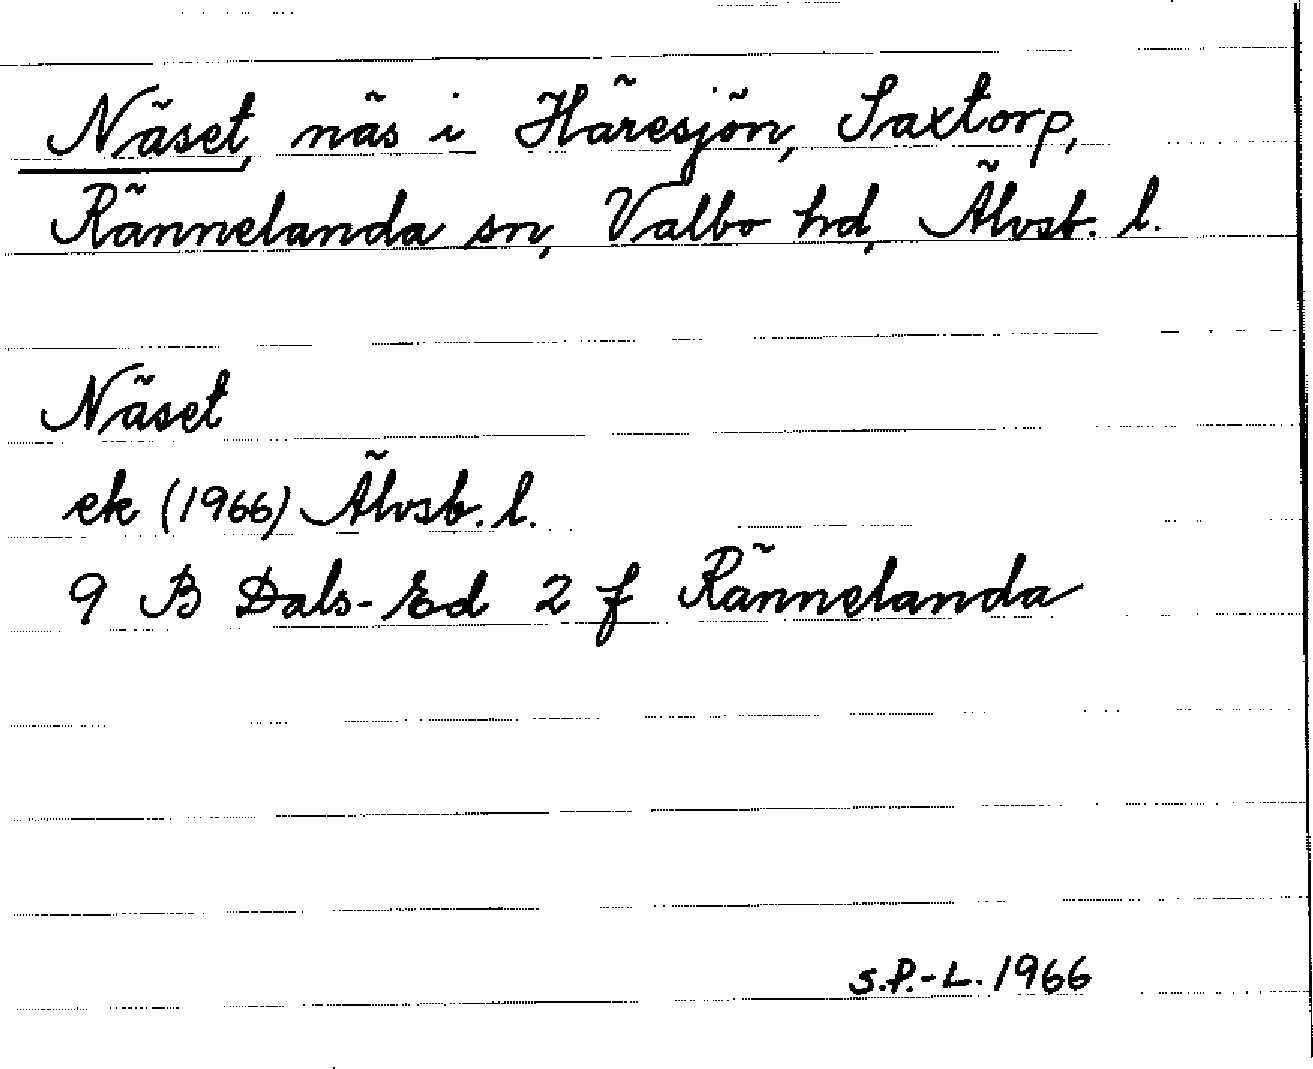 Näset, näs i Häresjön, Saxtorp,
Rännelanda sn, Valbo hd, Älvsb. l.
Näset
ek (1966) Älvsb. l.
9 B Dals-Ed 2 f Rännelanda
S.P.-L. 1966